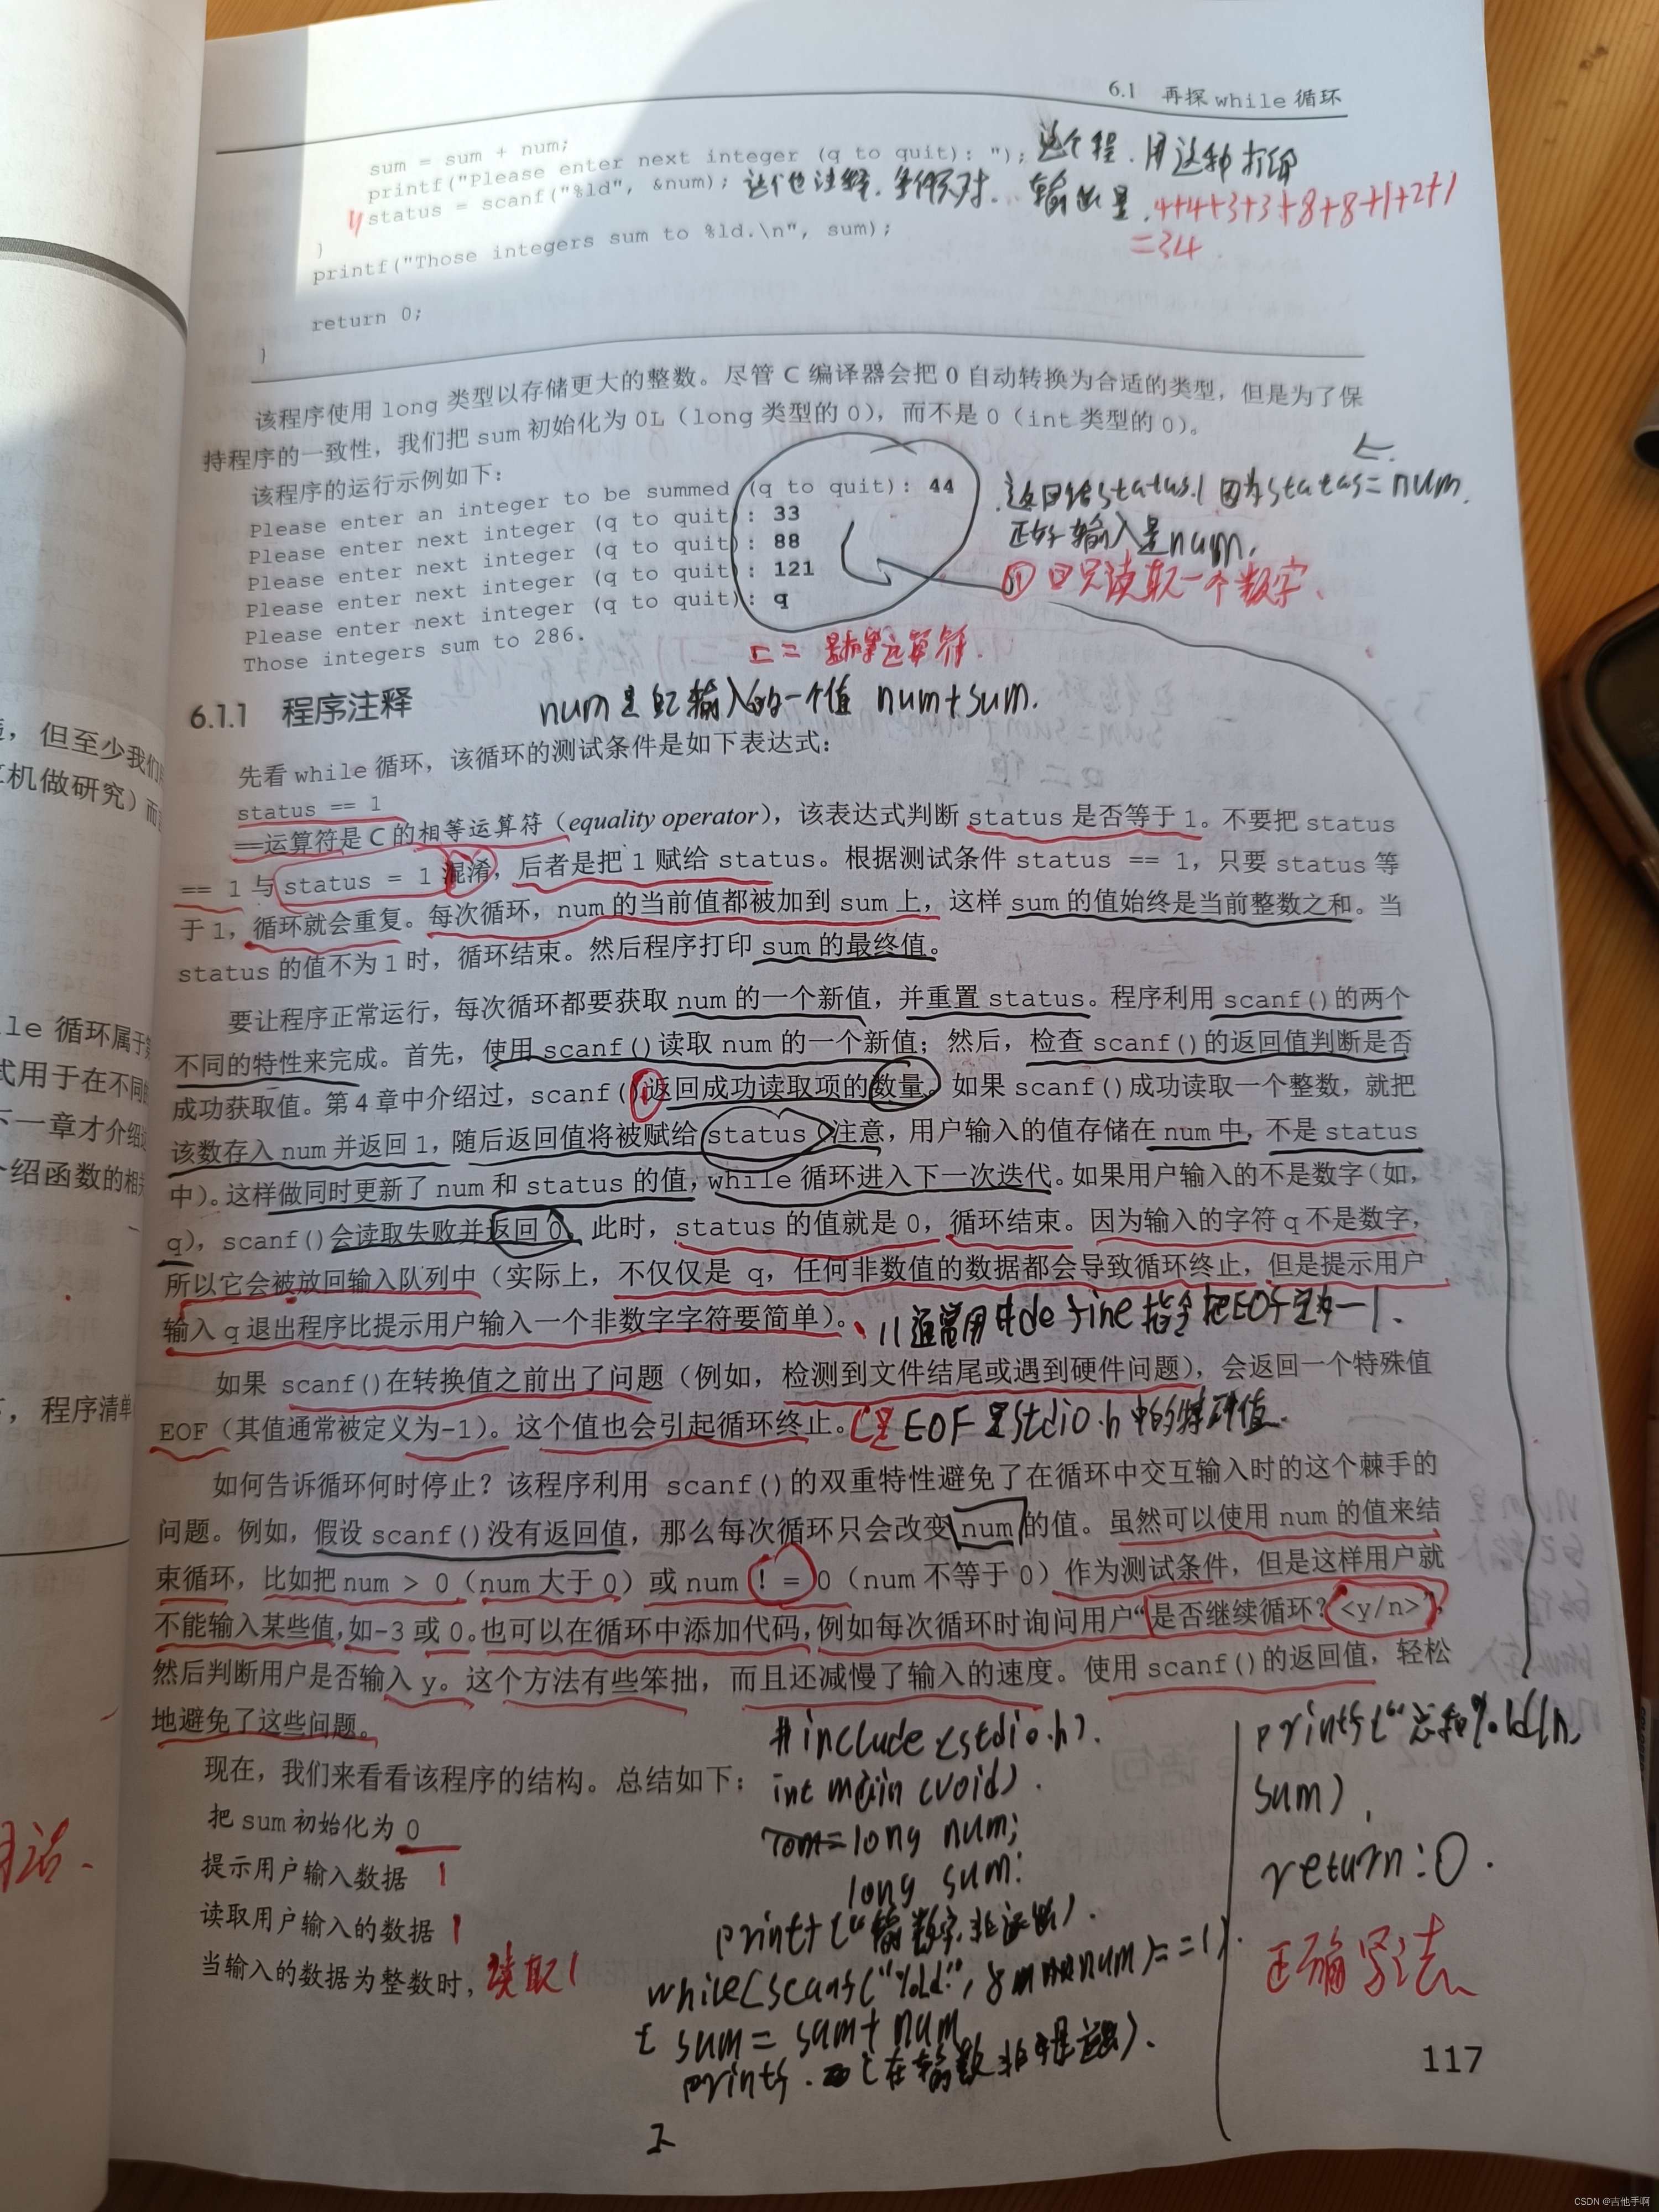 6.1 再探while循环
sum = sum + num;
printf("Please enter next integer (q to quit): "); 这个程. 用这种打印
status = scanf("%ld", &num); 输出是. 4+4+3+3+8+8+1+2+1
} =34
printf("Those integers sum to %ld.\n", sum);
return 0;
}
该程序使用long类型以存储更大的整数。尽管C编译器会把0自动转换为合适的类型，但是为了保
持程序的一致性，我们把sum初始化为0L（long类型的0），而不是0（int类型的0）。
该程序的运行示例如下：
Please enter an integer to be summed (q to quit): 44
Please enter next integer (q to quit): 33
Please enter next integer (q to quit): 88
Please enter next integer (q to quit): 121
Please enter next integer (q to quit): q
Those integers sum to 286.
返回给status.1 因为status=num.
正好输入是num.
只读取一个数字.
6.1.1 程序注释
num是自己输入的一个值 num+sum.
先看while循环，该循环的测试条件是如下表达式：
status == 1
==运算符是C的相等运算符（equality operator），该表达式判断status是否等于1。不要把status
== 1与status = 1混淆，后者是把1赋给status。根据测试条件status == 1，只要status等
于1，循环就会重复。每次循环，num的当前值都被加到sum上，这样sum的值始终是当前整数之和。当
status的值不为1时，循环结束。然后程序打印sum的最终值。
要让程序正常运行，每次循环都要获取num的一个新值，并重置status。程序利用scanf()的两个
不同的特性来完成。首先，使用scanf()读取num的一个新值；然后，检查scanf()的返回值判断是否
成功获取值。第4章中介绍过，scanf()返回成功读取项的数量。如果scanf()成功读取一个整数，就把
该数存入num并返回1，随后返回值将被赋给status（注意，用户输入的值存储在num中，不是status
中）。这样做同时更新了num和status的值，while循环进入下一次迭代。如果用户输入的不是数字（如，
q），scanf()会读取失败并返回0。此时，status的值就是0，循环结束。因为输入的字符q不是数字，
所以它会被放回输入队列中（实际上，不仅仅是q，任何非数值的数据都会导致循环终止，但是提示用户
输入q退出程序比提示用户输入一个非数字字符要简单）。
//通常用#define指令把EOF定为-1.
如果scanf()在转换值之前出了问题（例如，检测到文件结尾或遇到硬件问题），会返回一个特殊值
EOF（其值通常被定义为-1）。这个值也会引起循环终止。 EOF是stdio.h中的特殊值.
如何告诉循环何时停止？该程序利用scanf()的双重特性避免了在循环中交互输入时的这个棘手的
问题。例如，假设scanf()没有返回值，那么每次循环只会改变num的值。虽然可以使用num的值来结
束循环，比如把num > 0（num大于0）或num != 0（num不等于0）作为测试条件，但是这样用户就
不能输入某些值，如-3或0。也可以在循环中添加代码，例如每次循环时询问用户“是否继续循环？<y/n>”，
然后判断用户是否输入y。这个方法有些笨拙，而且还减慢了输入的速度。使用scanf()的返回值，轻松
地避免了这些问题。
现在，我们来看看该程序的结构。总结如下：
把sum初始化为0
提示用户输入数据 1
读取用户输入的数据 1
当输入的数据为整数时，读取1
#include <stdio.h>.
int main (void).
long num;
long sum:
printf ("输数字.非
while(scanf("%ld:", num)==1).
{ sum = sum + num
printf.
}
printf ("总和%ld\n,
sum).
return:0.
正确写法
117
CSDN @吉他手啊